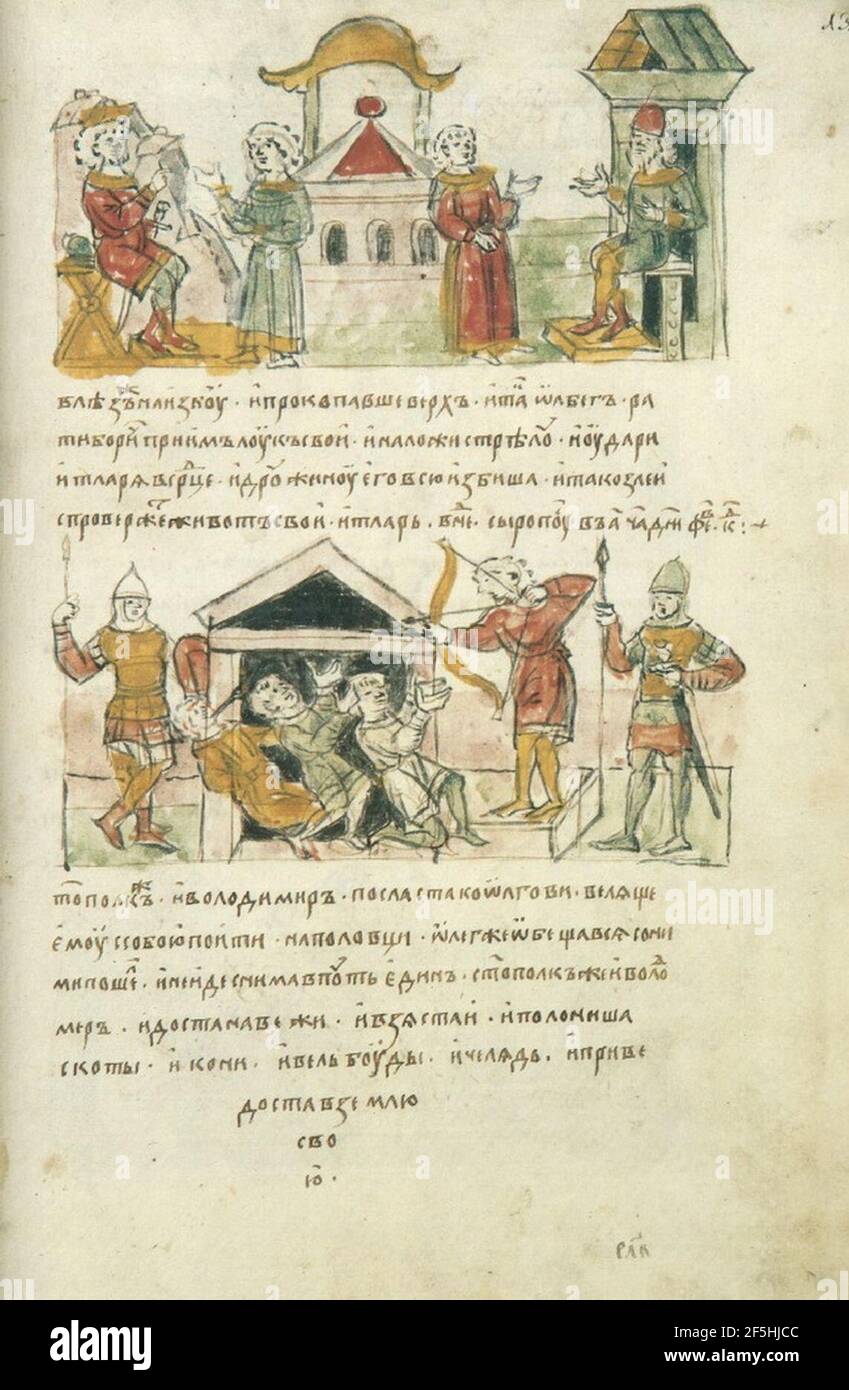 13
влѣзъ на истъкоу · и прокопавше верхъ · и та ѡлбегъ · ра
тиборич приимъ лоукъ свои · и наложи стрѣлоу · и оудари
итларя в срⷣце · и дроужиноу его всю избиша · и тако злѣ и
спроверже животъ свои · итларь · в нⷣе
тополкъ · и володимиръ · посласта ко ѡлгови · веляще
емоу с собою поити · на половци · ѡлегже ѡбещався с они
ми поше · и не иде с нима в поуть единъ · стополкъ же и воло
меръ · и доста на вежи · и взяста и · и полониша
скоты · и кони · и вельбоуды · и челядь · и приве
доста в землю
сво
ю ·
рлв
alamy
alamy
Image ID: 2F5HJCC
www.alamy.com